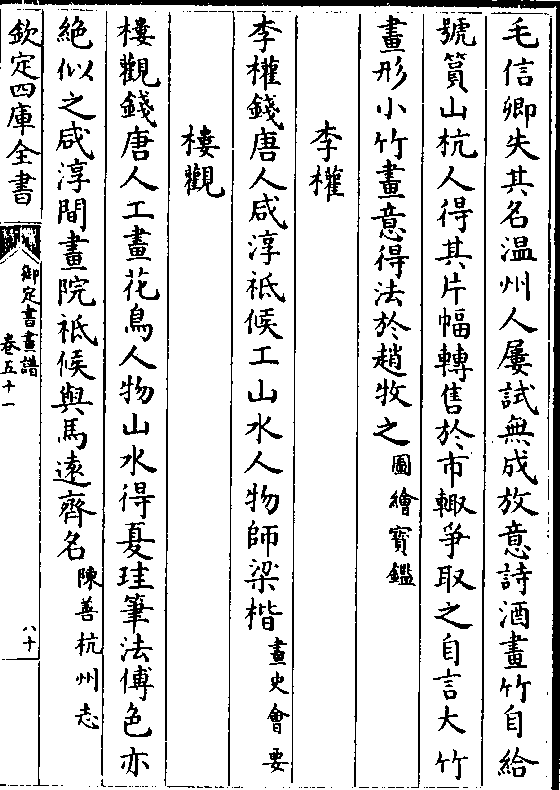 毛信卿失其名温州人屢試無成放意詩酒畫竹自給
號篔山杭人得其片幅轉售於市輙爭取之自言大竹
畫形小竹畫意得法於趙牧之圖繪寳鑑
李權
李權錢唐人咸淳祗候工山水人物師梁楷畫史會要
樓觀
樓觀錢唐人工畫花鳥人物山水得夏珪筆法傅色亦
絶似之咸淳間畫院祗候與馬遠齊名陳善杭州志
欽定四庫全書
御定書畫譜
卷五十一
八十